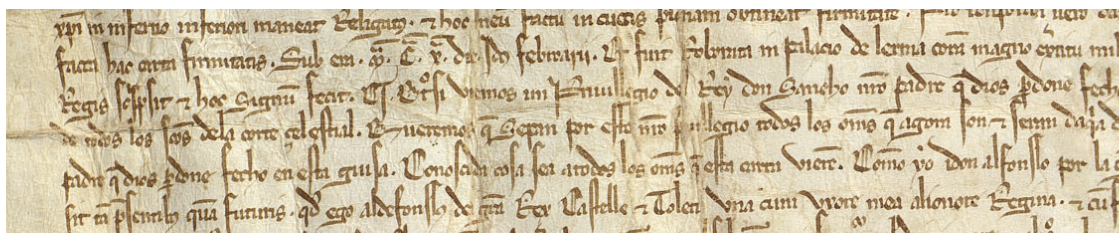 xpi in inferno inferiori maneat Religatus. & hoc meum factum in cunctis
facta hac carta firmitatis. Sub era. M. C. X. die febroarii. Et fuit roborata in palacio de lerma coram magno
Regis scripsit & hoc Signum fecit. Otrossi viemos un Priuillegio del Rey don Sancho nro padre q dios perdone fech
de todos los scos de la corte celestial. Et queremos q Sepan por este nro priuillegio todos los oms q agora son & seran daqa
padre q dios perdone fecho en esta guisa. Conosçida cosa sea atodos los oms q esta carta vieren. Como yo idon alfonsso por la
sit tam psentibus quam futuris. qd ego aldefonsus dei gra Rex Castelle & Toleti una cum uxore mea alionore Regina. & cum